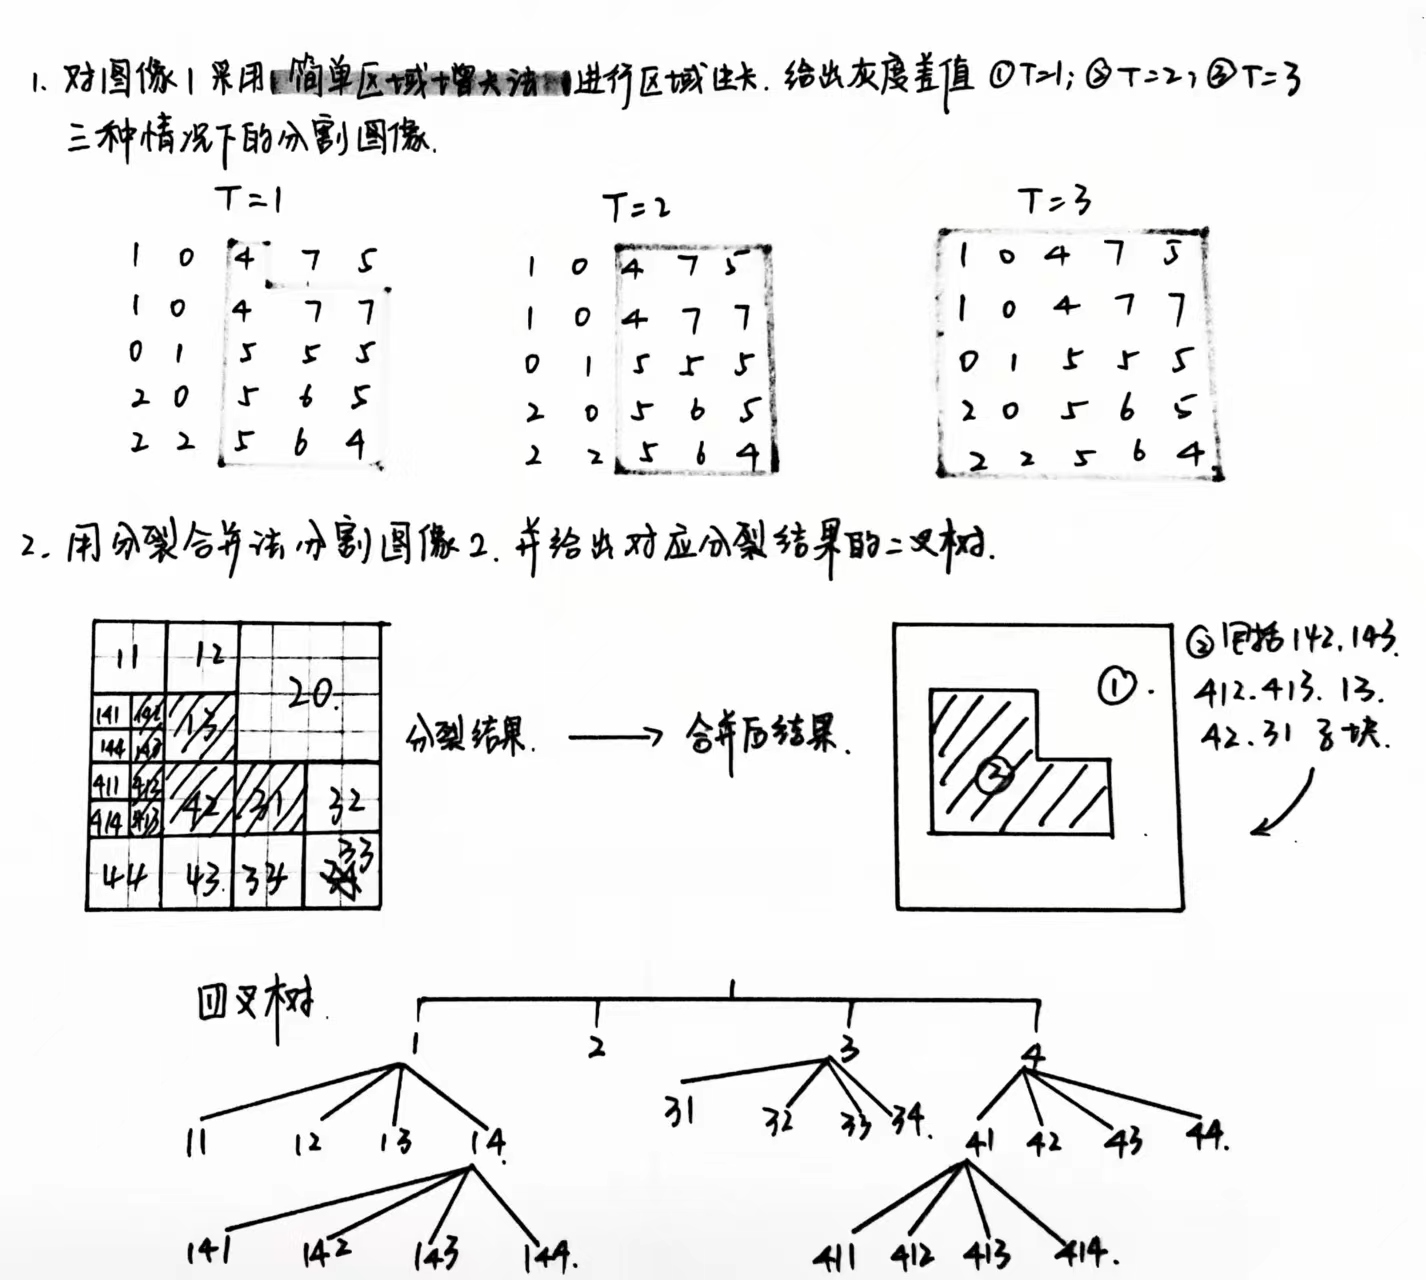 1. 对图像1采用简单区域增长法进行区域生长. 给出灰度差值 ①T=1; ②T=2; ③T=3
三种情况下的分割图像.
T=1 T=2 T=3
1 0 4 7 5 1 0 4 7 5 1 0 4 7 5
1 0 4 7 7 1 0 4 7 7 1 0 4 7 7
0 1 5 5 5 0 1 5 5 5 0 1 5 5 5
2 0 5 6 5 2 0 5 6 5 2 0 5 6 5
2 2 5 6 4 2 2 5 6 4 2 2 5 6 4
2. 用分裂合并法分割图像2. 并给出对应分裂结果的二叉树.
11 12 20.
141 142 13
144 143
411 412 42 31 32
414 413
44 43. 34 33
分裂结果. 合并后结果.
① .
②
②包括142.143.
412.413. 13.
42.31 子块.
四叉树.
1 2 3 4
11 12 13 14. 31 32 33 34. 41 42 43 44.
141 142 143 144. 411 412 413 414.